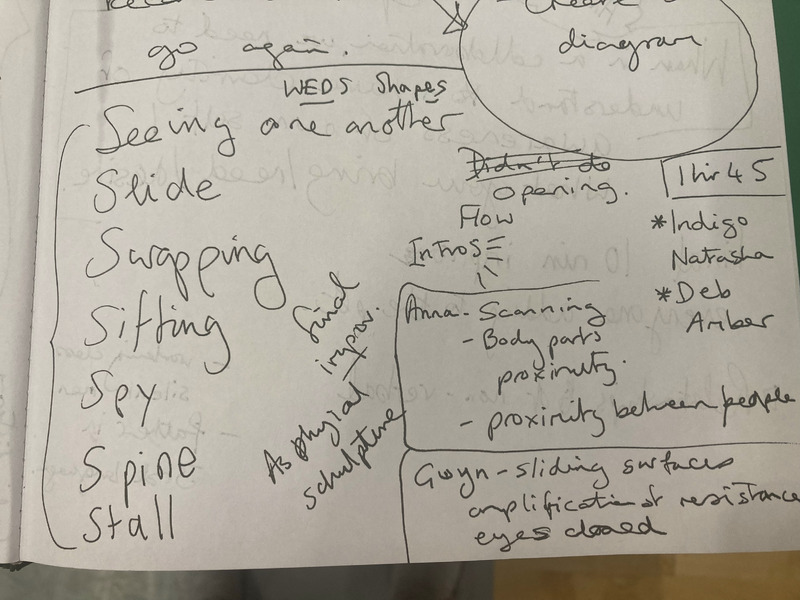 go again.
Create a
diagram
WEDS Shapes
Seeing one another
Slide
Swapping
Sifting
Spy
Spine
Stall
final
improv.
As phyial
schulpture
Didn't do
opening.
Flow
Intros
1 hr 45
*Indigo
Natasha
*Deb
Amber
Anna - Scanning
- Body parts
proximity.
- proximity between people
Gwyn - sliding surfaces
amplification of resistance
eyes closed